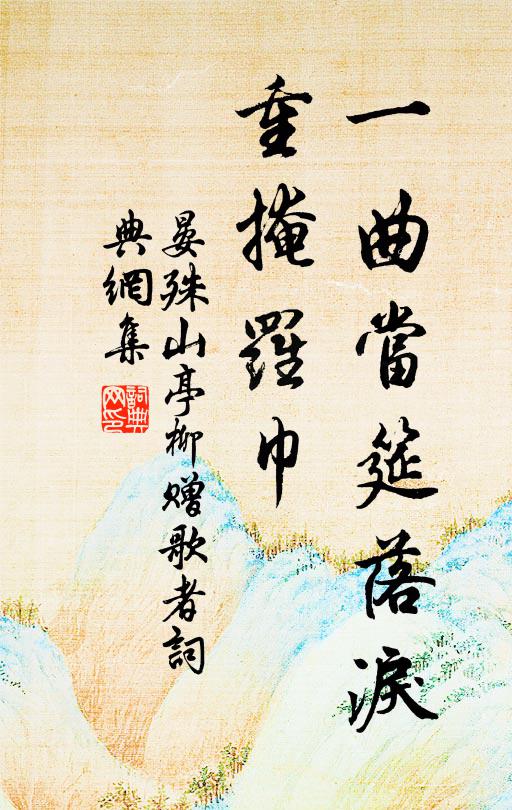 一曲當筵落淚
重掩羅巾
晏殊山亭柳贈歌者詞
典網集
詞典
网印